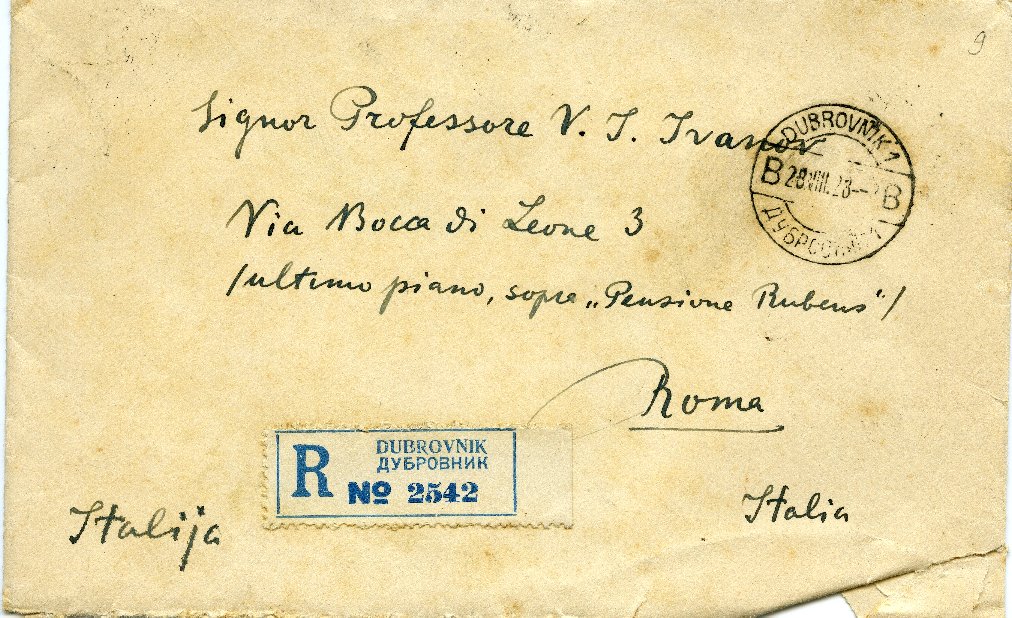 9
Signor Professore V. I. Ivanov
DUBROVNIK 1
B 28.VIII.28 B
Via Bocca di Leone 3
/ultimo piano, sopra „Pensione Rubens"/
Roma
R DUBROVNIK
ДУБРОВНИК
№ 2542
Italija
Italia